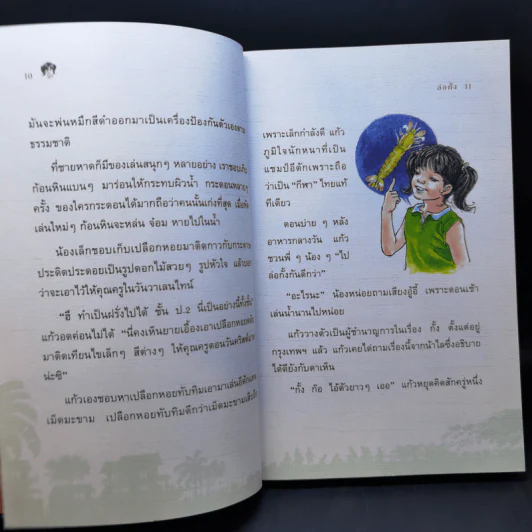 10
มันจะพ่นหมึกสีดำออกมาเป็นเครื่องป้องกันตัวเองตาม
ธรรมชาติ
ที่ชายหาดก็มีของเล่นสนุกๆ หลายอย่าง เราชอบเก็บ
ก้อนหินแบนๆ มาร่อนให้กระทบผิวน้ำ กระดอนหลายๆ
ครั้ง ของใครกระดอนได้มากถือว่าคนนั้นเก่งที่สุด เมื่อหัด
เล่นใหม่ๆ ก้อนหินจะหล่น จ๋อม หายไปในน้ำ
น้องเล็กชอบเก็บเปลือกหอยมาติดกาวกับกระดาษ
ประดิดประดอยเป็นรูปดอกไม้สวยๆ รูปหัวใจ แล้วบอก
ว่าจะเอาไว้ให้คุณครูในวันวาเลนไทน์
"ฮึ ทำเป็นฝรั่งไปได้ ชั้น ป.2 นี่เป็นอย่างนี้ทั้งชั้น"
แก้วอดค่อนไม่ได้ "นี่คงเห็นยายเอื้องเอาเปลือกหอย
มาติดเทียนไขเล็กๆ สีต่างๆ ให้คุณครูตอนวันคริสต์มาส
น่ะซิ"
แก้วเองชอบหาเปลือกหอยทับทิมเอามาเล่นอีตัก
เม็ดมะขาม เปลือกหอยทับทิมดีกว่าเม็ดมะขาม
ล่อกั้ง 11
เพราะเล็กกำลังดี แก้ว
ภูมิใจนักหนาที่เป็น
แชมป์อีตักเพราะถือ
ว่าเป็น "กีฬา" ไทยแท้
ทีเดียว
ตอนบ่าย ๆ หลัง
อาหารกลางวัน แก้ว
ชวนพี่ ๆ น้อง ๆ "ไป
ล่อกั้งกันดีกว่า"
"อะไรนะ" น้องหน่อยถามเสียงอู้อี้ เพราะตอนเช้า
เล่นน้ำนานไปหน่อย
แก้ววางตัวเป็นผู้ชำนาญการในเรื่อง กั้ง ตั้งแต่อยู่
กรุงเทพฯ แล้ว แก้วเคยไต่ถามเรื่องนี้จากน้าไลซึ่งอธิบาย
ได้ดียังกับตาเห็น
"กั้ง ก๊อ ไอ้ตัวยาวๆ เออ" แก้วหยุดคิดสักครู่หนึ่ง